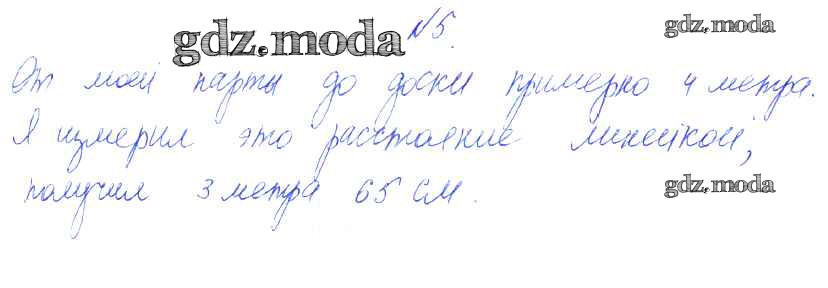 gdz.moda №5. gdz.moda
От моей парты до доски примерно 4 метра.
Я измерил это расстояние линейкой,
получил 3 метра 65 см.
gdz.moda